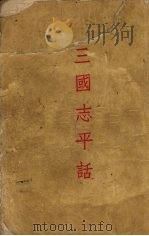 研狗
三國志平話
mtoou.info